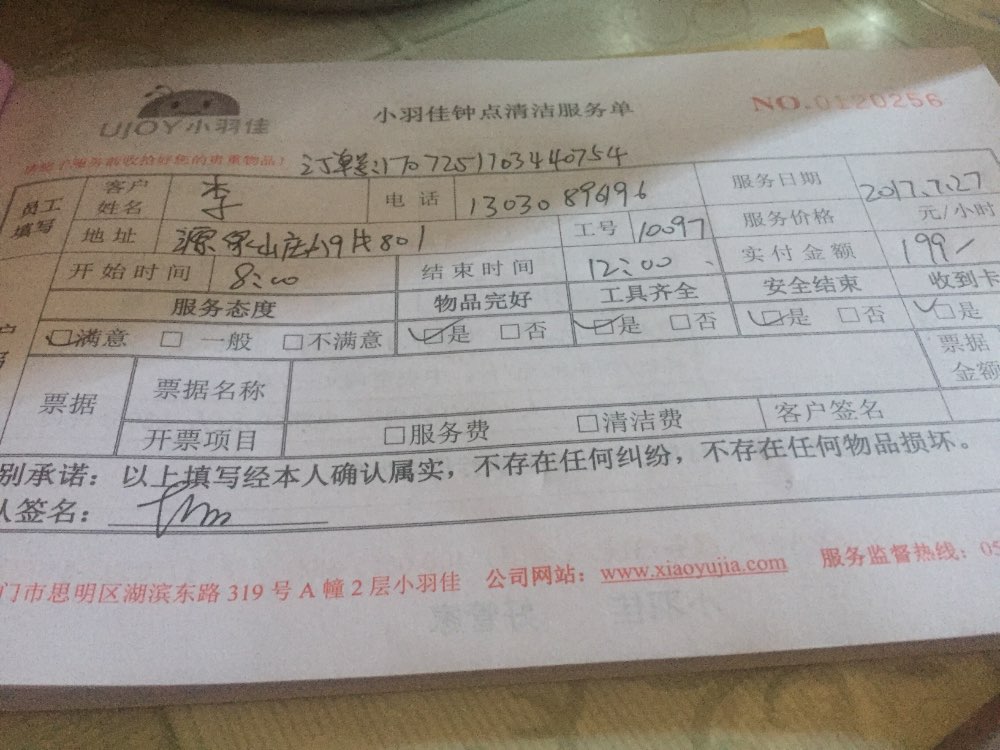 UJOY小羽佳
小羽佳钟点清洁服务单
NO.0120256
订单号:1707251703440754
员工填写 客户姓名 李 电话 13030896196 服务日期 2017.7.27
地址 801 工号 10097 服务价格 元/小时
开始时间 8:00 结束时间 12:00 实付金额 199/
服务态度 物品完好 工具齐全 安全结束 收到卡
□满意 □一般 □不满意 □是 □否 □是 □否 □是 □否 □是
票据 票据名称 票据金额
开票项目 □服务费 □清洁费 客户签名
别承诺：以上填写经本人确认属实，不存在任何纠纷，不存在任何物品损坏。
人签名：
门市思明区湖滨东路319号A幢2层小羽佳 公司网站：www.xiaoyujia.com 服务监督热线：05